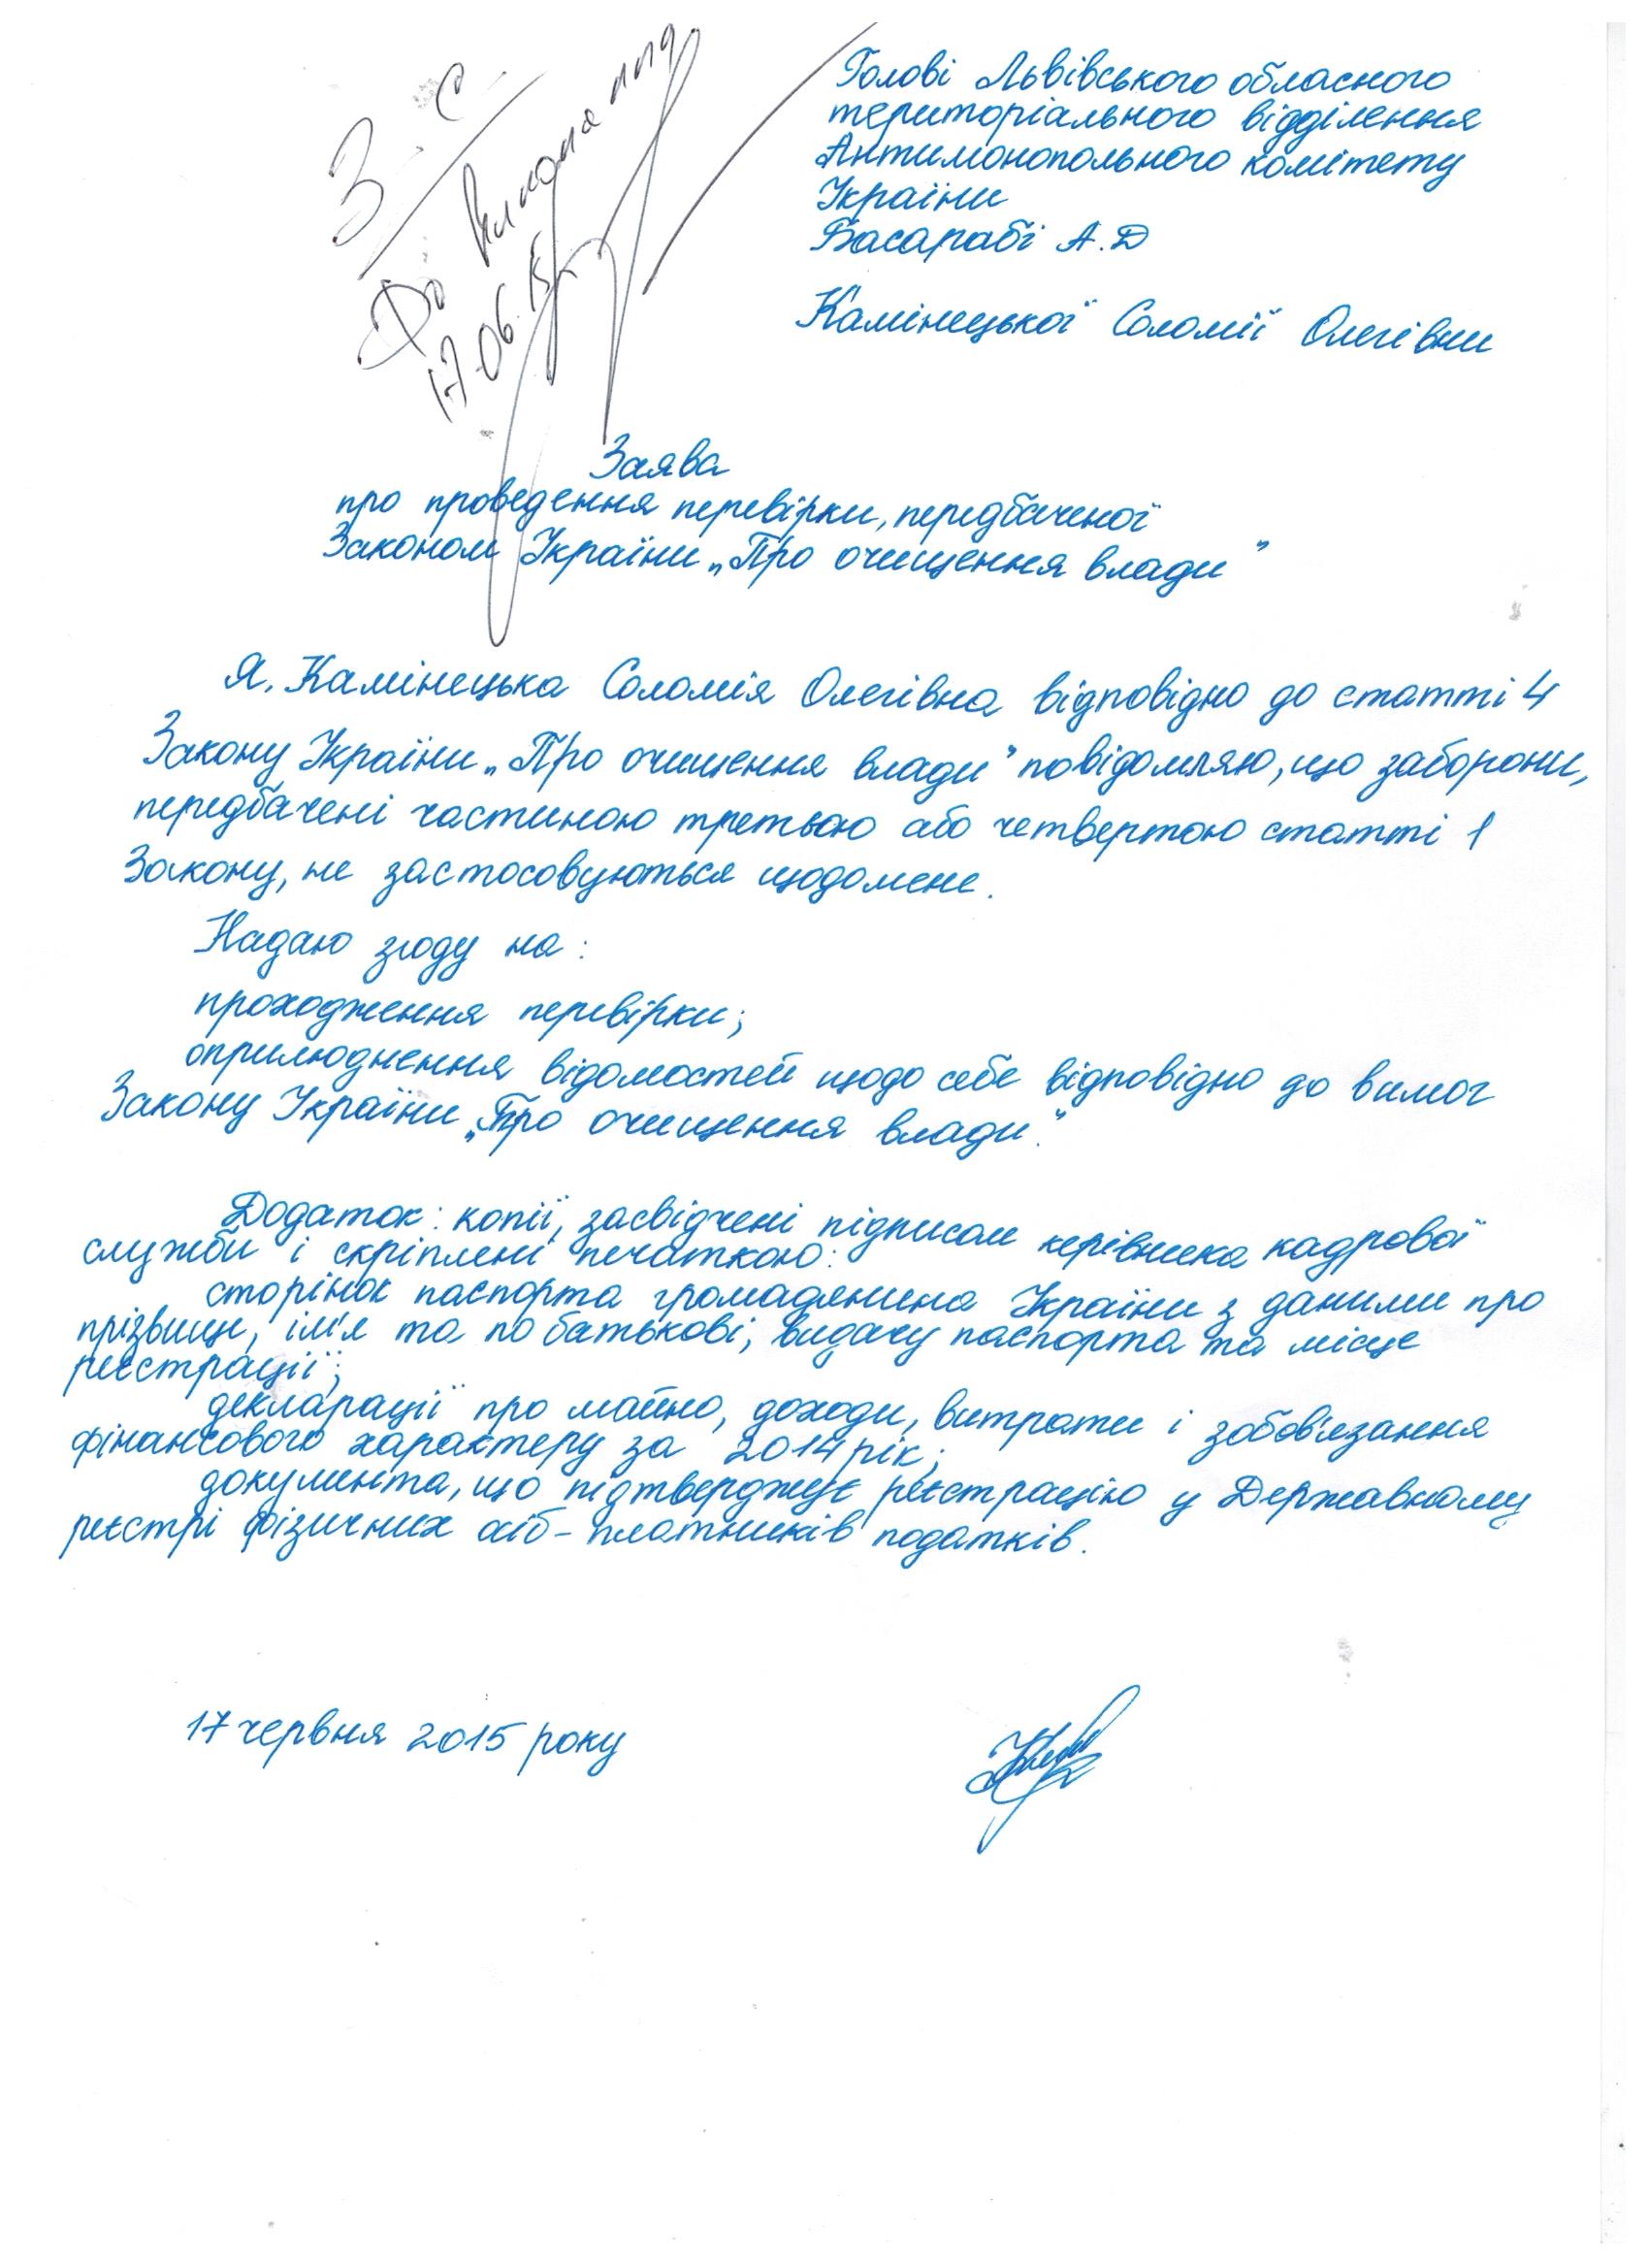 До виконання
17.06.15
Голові Львівського обласного
територіального відділення
Антимонопольного комітету
України
Басарабі А.Д
Камінецької Соломії Олегівни
Заява
про проведення перевірки, передбаченої
Законом України „Про очищення влади"
Я, Камінецька Соломія Олегівна відповідно до статті 4
Закону України „Про очищення влади" повідомляю, що заборони,
передбачені частиною третьою або четвертою статті 1
Закону, не застосовуються щодомене.
Надаю згоду на:
проходження перевірки;
оприлюднення відомостей щодо себе відповідно до вимог
Закону України „Про очищення влади".
Додаток: копії, засвідчені підписом керівника кадрової
служби і скріплені печаткою:
сторінок паспорта громадянина України з даними про
прізвище, ім'я та по батькові, видачу паспорта та місце
реєстрації;
декларації про майно, доходи, витрати і зобов'язання
фінансового характеру за 2014 рік;
документа, що підтверджує реєстрацію у Державному
реєстрі фізичних осіб - платників податків.
17 червня 2015 року